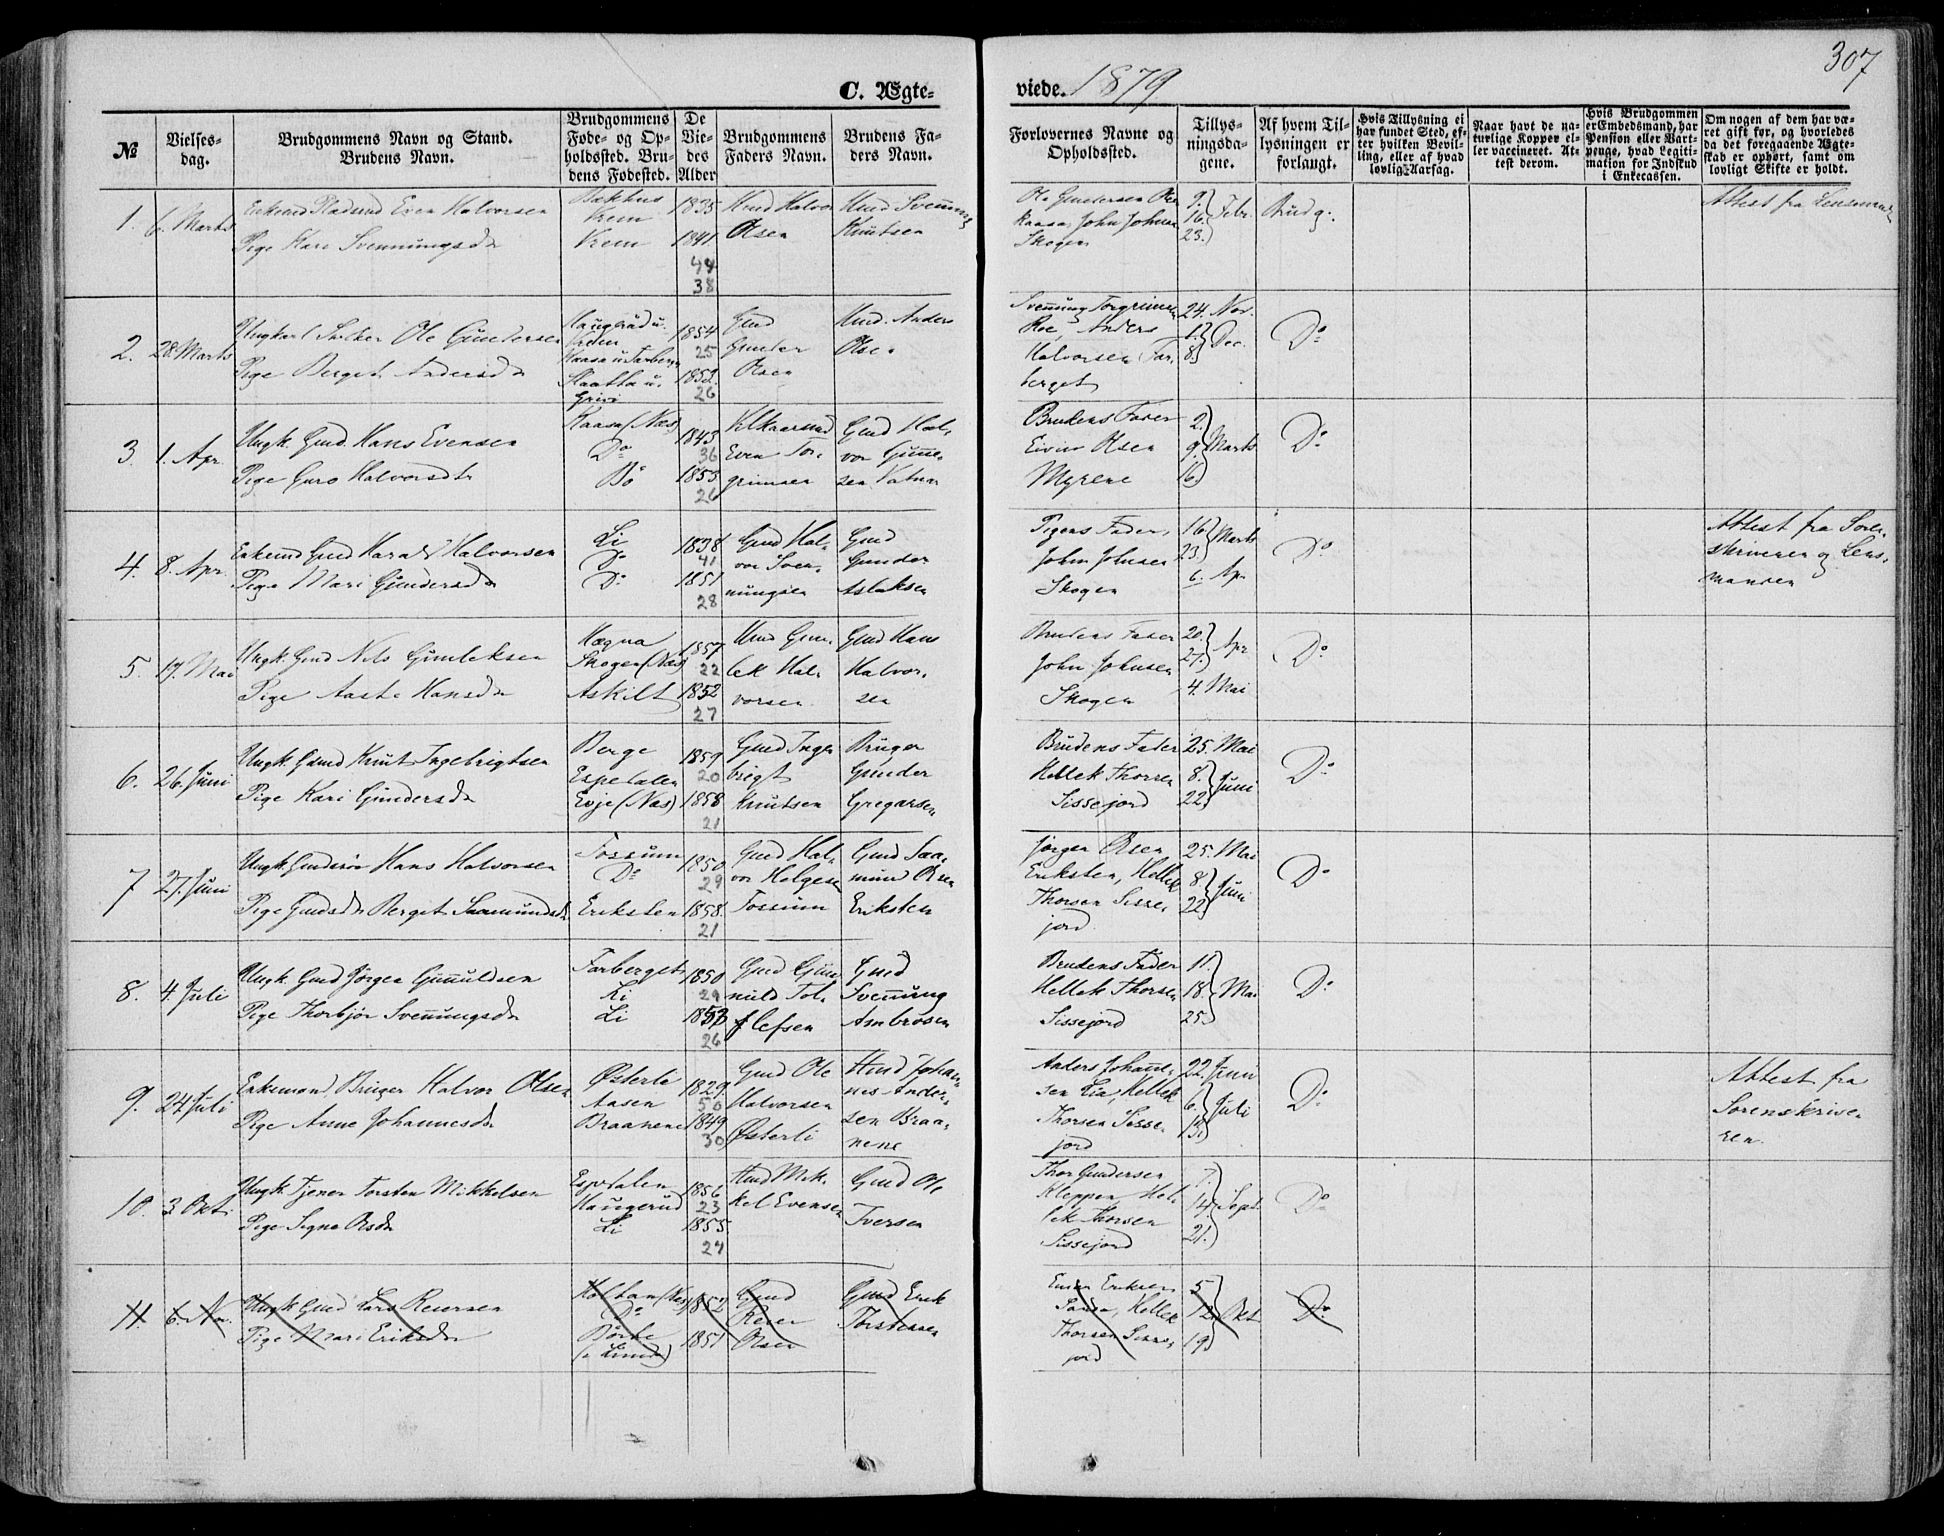 307
C. Ægte-
viede. 1879
№
Vielses-
dag.
Brudgommens Navn og Stand.
Brudens Navn.
Brudgommens
Føde- og Op-
holdssted. Bru-
dens Fødested.
De
Vie-
des
Alder
Brudgommens
Faders Navn.
Brudens Fa-
ders Navn.
Forlovernes Navne og
Opholdssted.
Tillys-
ningsda-
gene.
Af hvem Til-
lysningen er
forlangt.
Hvis Tillysning ei
har fundet Sted, ef-
ter hvilken Bevil-
ling, eller af hvad
lovlig Aarsag.
Naar havt de na-
turlige Kopper el-
ler vaccineret. At-
test derom.
Hvis Brudgommen
er Embedsmand, har
Pension eller Vart-
penge, hvad Legiti-
mation for Indskud
i Enkecassen.
Om nogen af dem har væ-
ret gift før, og hvorledes
da det foregaaende Ægte-
skab er ophørt, samt om
lovligt Skifte er holdt.
1. 6. Marts
Enkemd Pladsmd Even Halvorsen
Pige Kari Svennungsdr
Bakhus
Vrem
Vrem
1835
1841
44
38
Hmd Halvor
Olsen
Hmd Svennung
Knutsen
Ole Gundersen
Kaasa, John Johnsen
Skogen
9.
16. Febr.
23.
Brudg.
Attest fra Lensmand
2. 28. Marts
Ungkarl Ole Gundersen
Pige Berget Andersdr
Haugrud u.
Kaasa u Farberg
1854
25
1853.
26
Gmd
Gunder
Olsen
Hmd. Anders
Olsen
Svennung Torgrimsen
Roe, Anders
Halvorsen Far-
berget
24. Nov.
1. Dec.
8.
Do
3. 1. Apr.
Ungk. Gmd. Hans Evensen
Pige Guro Halvorsdr
Kaasa (Næs)
Do
Bö
1843
36
1853
26
Even Tor-
grimsen
Gmd Hal-
vor Gunne-
sen Vatnar
Brudens Fader
Eivin Olsen
Myrene
2.
9. Marts
16.
Do
4. 8. Apr.
Enkemd Gmd Harald Halvorsen
Pige Mari Gundersdr
Li
Do
Do
1838
41
1851
28
Gmd Hal-
vor Sven-
nungsen
Gmd
Gunder
Aslaksen
Pigens Fader,
John Johnsen
Skogen
16. Marts
23.
6. Apr
Do
Attest fra Soren-
skriveren og Lens-
manden
5. 17. Mai
Ungk. Gmd Nils Gunleksen
Pige Aaste Hansdr
Hægna
Skogen (Næs)
Askilt
1857
22
1852
27
Hmd Gun-
lek Hal-
vorsen
Gmd Hans
Halvor-
sen
Brudens Fader
John Johnsen
Skogen
20. Apr
27.
4. Mai
Do
6. 26. Juni
Ungk. Gmd Knut Ingebrigtsen
Pige Kari Gundersdr
Berge
Espedalen
Evje (Næs)
1859
20
1858
21
Gmd Inge-
brigt
Knutsen
Bruger
Gunder
Gregarsen
Brudens Fader
Hellek Thorsen
Sissejord
25. Mai
8. Juni
22.
Do
7 27. Juni
Ungk. Gmdsön Hans Halvorsen
Pige Gmdsdr Berget Saamundsdr
Fossum
Do
Eriksten
1850
29
1858.
21
Gmd Hal-
vor Helgesen
Fossum
Gmd Saa-
mund Olsen
Eriksten
Jørgen Olsen
Eriksten, Hellek
Thorsen Sisse-
jord.
25. Mai
8. Juni
22
Do
8. 4. Juli
Ungk. Gmd Jörgen Gunnuldsen
Pige Thorbjør Svennungsdr
Farberget
Li
Li
1850
29
1853
26
Gmd Gun-
nuld Tol-
lefsen
Gmd
Svennung
Ambrosen
Brudens Fader
Hellek Thorsen
Sissejord
11.
18. Mai
25.
Do
9. 24. Juli
Enkemand, Bruger Halvor Olsen
Pige Anne Johannesdr
Østerli
Aasen
Braanene
1829.
50
1849
30
Gmd Ole
Halvorsen
Østerli
Hmd Johan-
nes Ander-
sen Braa-
nene
Anders Johanne-
sen Lia, Hellek
Thorsen Sisse-
jord
22. Juni
6. Juli
13.
Do
Attest fra
Sorenskrive-
ren.
10. 3 Okt.
Ungk. Tjener Torsten Mikkelsen
Pige Signe Olsdr
Espedalen
Haugerud
Li
1856
23
1855.
24
Hmd Mik-
kel Evensen
Gmd Ole
Iversen
Thor Gundersen
Kleppen, Hel-
lek Thorsen
Sissejord
7.
14. Sept.
21.
Do
11. 6. Nov.
Ungk. Gmd Lars Reiersen
Pige Mari Eriksdr
Holtan (Næs)
Do
1852
1851
Gmd
Reier
Olsen
Gmd Erik
Torstensen
Eriksen
Hellek
Thorsen Sisse-
jord
5
12. Okt
19
Do